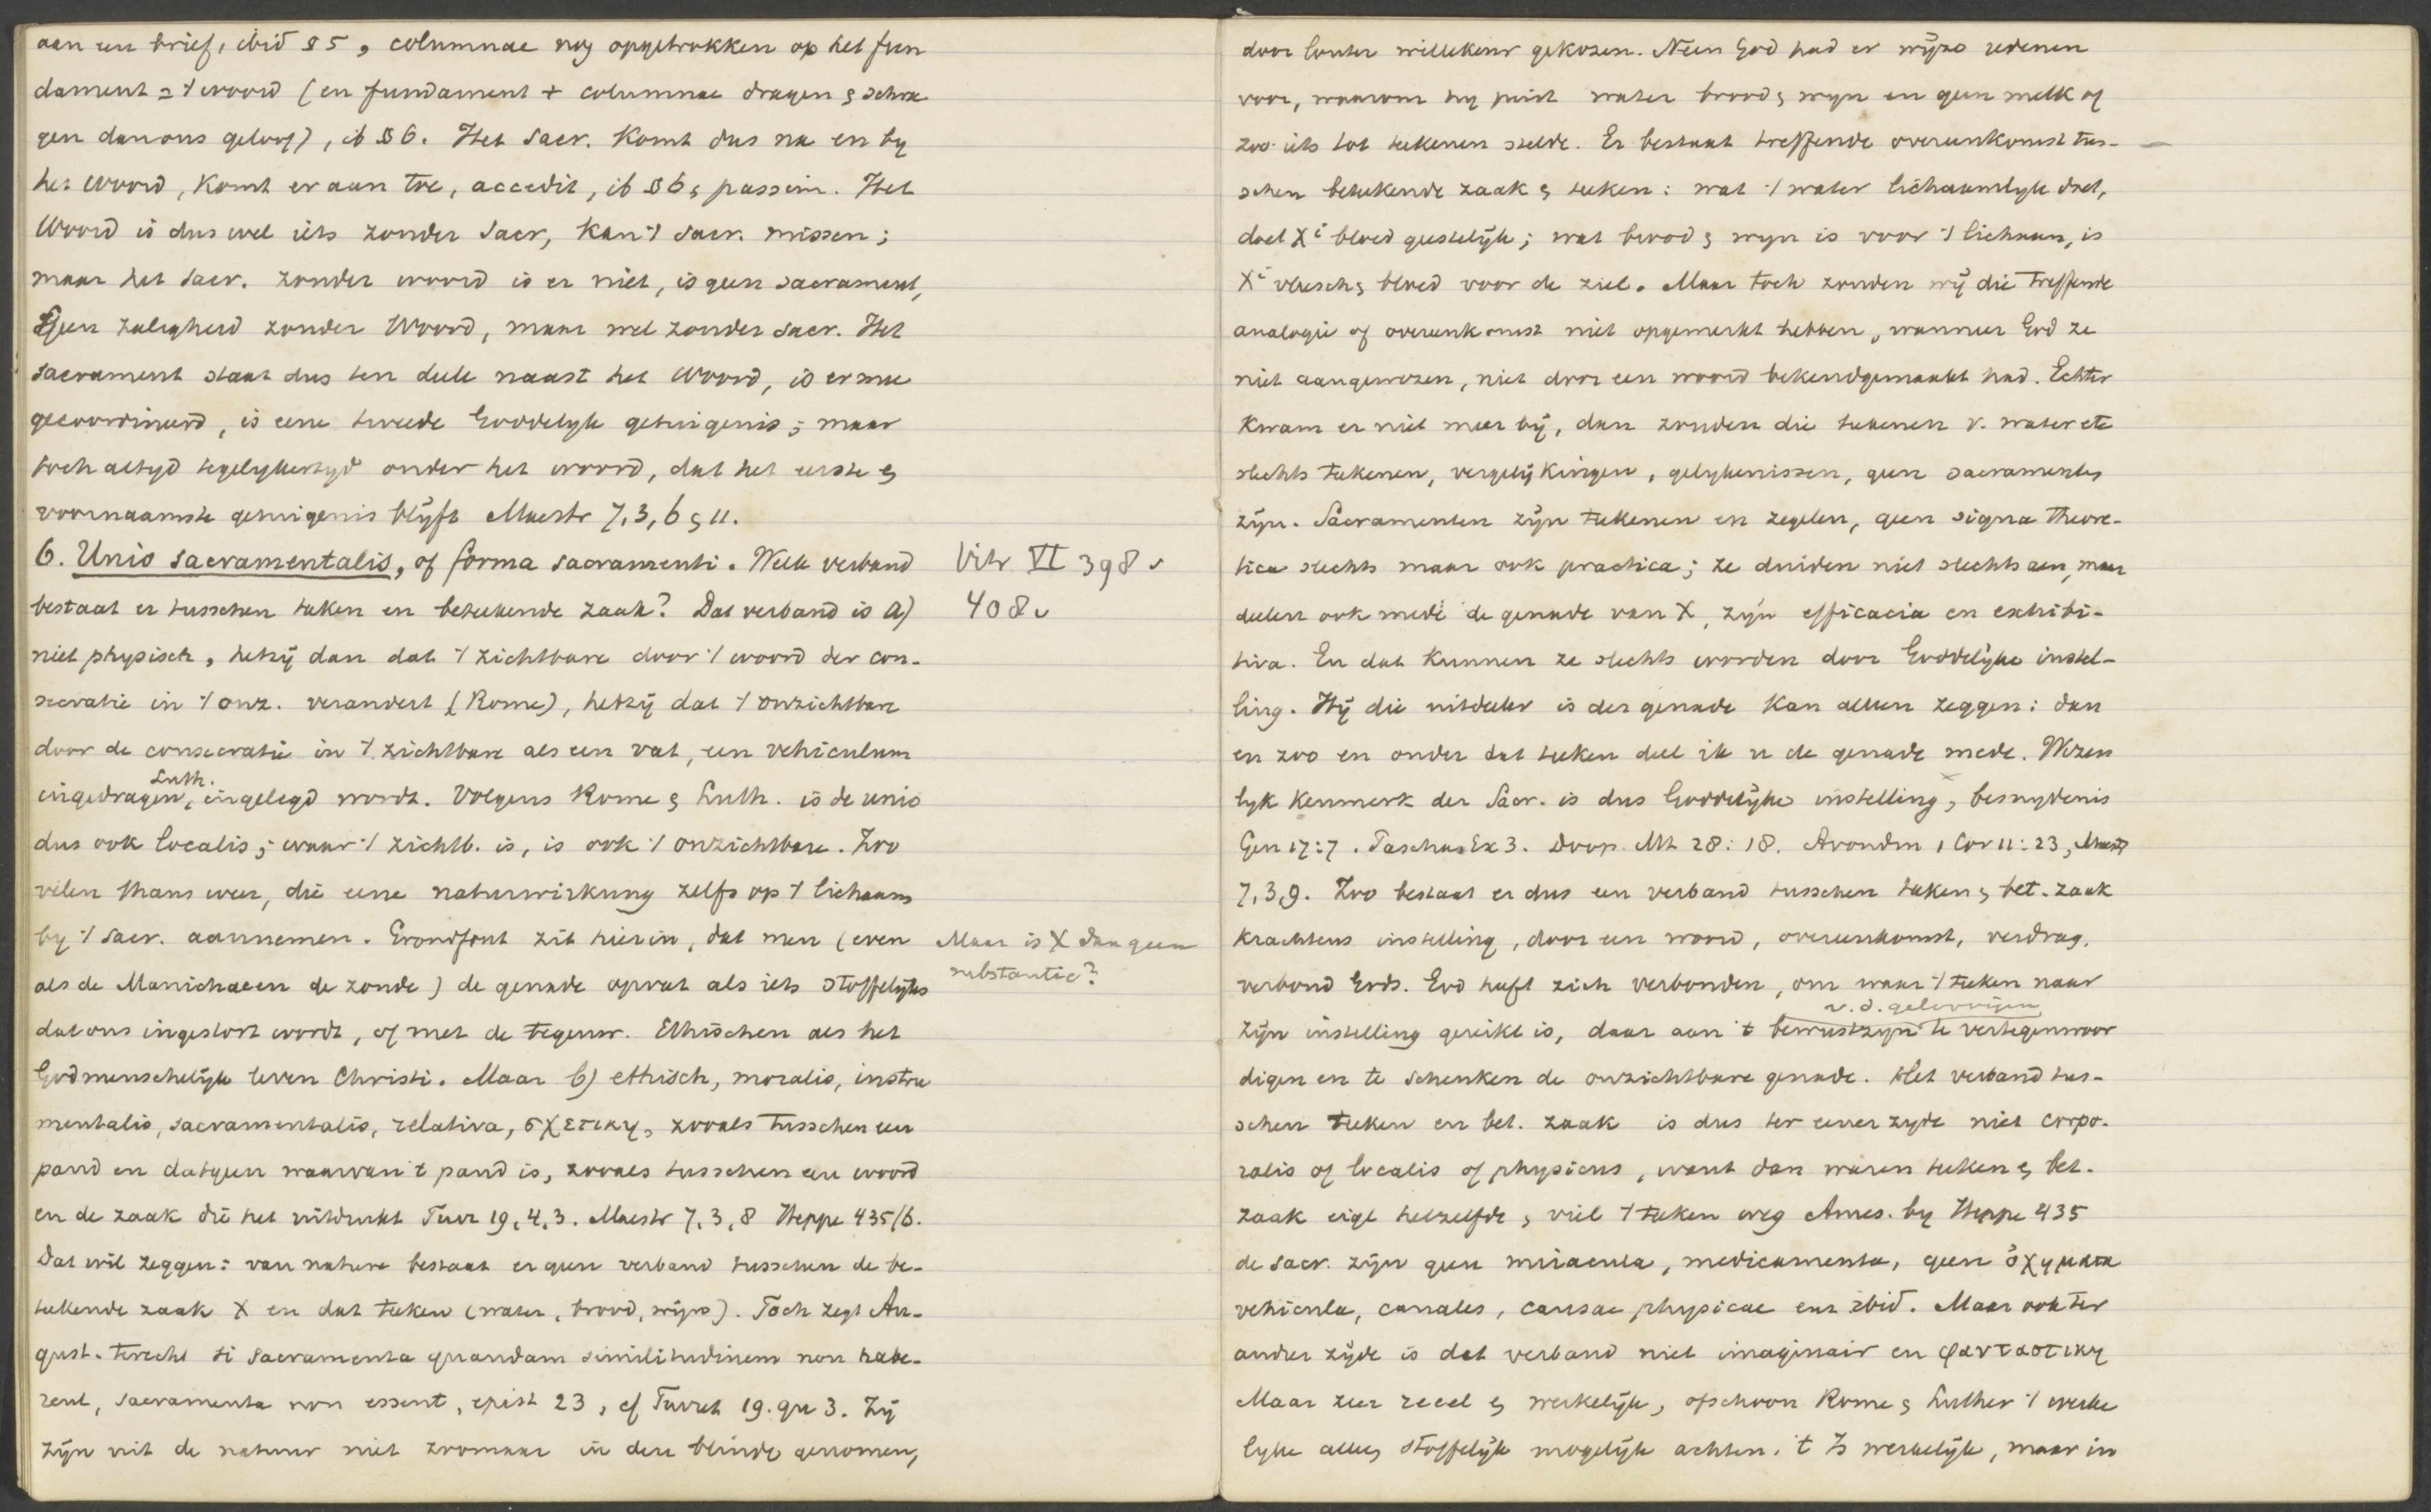 aan een brief, ibid § 5, columnae nog opgetrokken op het fun
dament = 't woord (en fundament + columnae dragen & schra
gen dan ons geloof), ib § 6. Het Sacr. komt dus na en by
het woord, komt er aan toe, accedit, ib § 6 & passim. Het
Woord is dus wel iets zonder Sacr, kan 't Sacr. missen;
maar het Sacr. zonder woord is er niet, is geen sacrament,
Geen zaligheid zonder Woord, maar wel zonder sacr. Het
sacrament staat dus ten deele naast het woord, is ermee
gecoordineerd, is eene tweede Goddelyk getuigenis; maar
toch altyd tegelykertyd onder het woord, dat het eerste &
voornaamste getuigenis blyft Maestr 7,3,6 & 11.
6. Unio sacramentalis, of forma sacramenti. Welk verband
bestaat er tusschen teeken en beteekende zaak? Dat verband is a)
niet physisch, hetzij dan dat 't zichtbare door 't woord der con-
secratie in 't onz. verandert (Rome), hetzij dat 't onzichtbare
door de consecratie in 't zichtbare als een vat, een vehiculum
Luth.
ingedragen, ingelegd wordt. Volgens Rome & Luth. is de unio
dus ook localis; waar 't zichtb. is, is ook 't onzichtbare. Zoo
velen thans weer, die eene naturwirkung zelfs op 't lichaam
by 't Sacr. aannemen. Grondfout zit hierin, dat men (even
als de Manichaeen de zonde) de genade opvat als iets stoffelijks
dat ons ingestort wordt, of met de tegenw. Ethischen als het
Godmenschelijk leven Christi. Maar b) ethisch, moralis, instru
mentalis, sacramentalis, relativa, σχετικη, zooals tusschen een
pand en datgeen waarvan 't pand is, zooals tusschen een woord
en de zaak die het uitdrukt Turr 19,4,3. Maestr 7,3,8 Heppe 435/6.
Dat wil zeggen: van nature bestaat er geen verband tusschen de be-
teekende zaak X en dat teeken (water, brood, wijn). Toch zegt Au-
gust. terecht si sacramenta quandam similitudinem non habe-
rent, sacramenta non essent, epist 23, cf Turret 19. qu 3. Zij
zijn uit de natuur niet zoomaar in den blinde genomen,
Vitr VI 398 v
408 v
Maar is X dan geen
substantie?
door louter willekeur gekozen. Neen God had er wijze redenen
voor, waarom hy juist water brood & wyn en geen melk of
zoo iets tot teekenen stelde. Er bestaat treffende overeenkomst tus-
schen beteekende zaak & teeken: wat 't water lichaamlyk doet,
doet Xi bloed geestelijk; wat brood & wyn is voor 't lichaam, is
Xi vleesch & bloed voor de ziel. Maar toch zouden wij die treffende
analogie of overeenkomst niet opgemerkt hebben, wanneer God ze
niet aangewezen, niet door een woord bekendgemaakt had. Echter
kwam er niet meer bij, dan zouden die teekenen v. water etc
slechts teekenen, vergelijkingen, gelykenissen, geen sacramenten
zijn. Sacramenten zijn teekenen en zegelen, geen signa theore-
tica slechts maar ook practica; ze duiden niet slechts aan, maar
deelen ook mede de genade van X, zijn efficacia en exhibi-
tiva. En dat kunnen ze slechts worden door Goddelijke instel-
ling. Hij die uitdeeler is der genade kan alleen zeggen: dan
en zoo en onder dat teeken deel ik u de genade mede. Wezen
lyk kenmerk der Sacr. is dus Goddelijke instelling, besnydenis
Gen 17:7. Pascha Ex 3. Doop Mt 28:18. Avondm 1 Cor 11:23, Maestr
7,3,9. Zoo bestaat er dus een verband tusschen teeken & bet. zaak
krachtens instelling, door een woord, overeenkomst, verdrag,
verbond Gods. God heeft zich verbonden, om waar 't teeken naar
v. d. geloovigen
zijn instelling gereikt is, daar aan 't bewustzyn te vertegenwoor
digen en te schenken de onzichtbare genade. Het verband tus-
schen teeken en bet. zaak is dus ter eener zyde niet corpo-
ralis of localis of physicus, want dan waren teeken & bet.
zaak eigl hetzelfde, viel 't teeken weg Ames. by Heppe 435
de sacr. zijn geen miracula, medicamenta, geen ὀχηματα
vehicula, canales, causae physicae enz ibid. Maar ook ter
ander zijde is dat verband niet imaginair en φανταστικη
Maar zeer reeel & werkelijk, ofschoon Rome & Luther 't werke
lyke alleen stoffelijk mogelijk achten. 't Is werkelijk, maar in